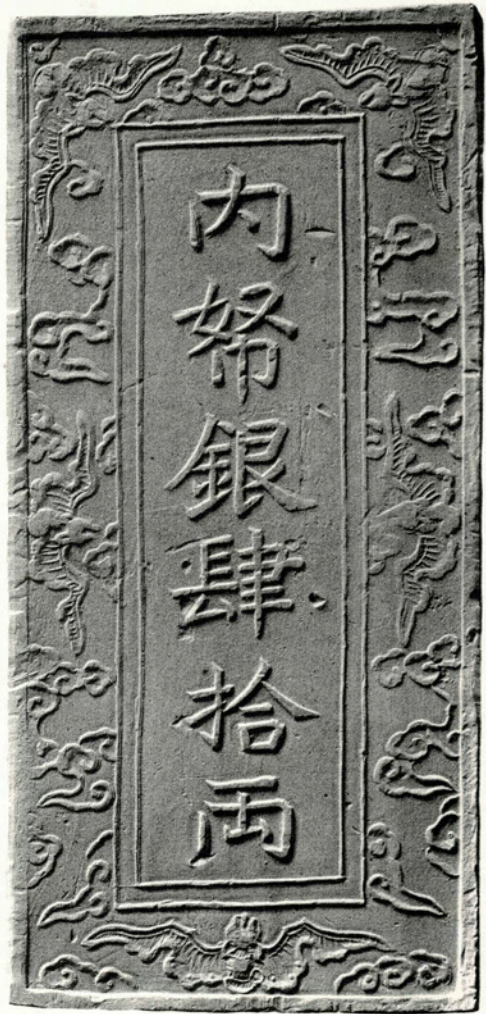 内帑銀肆拾両